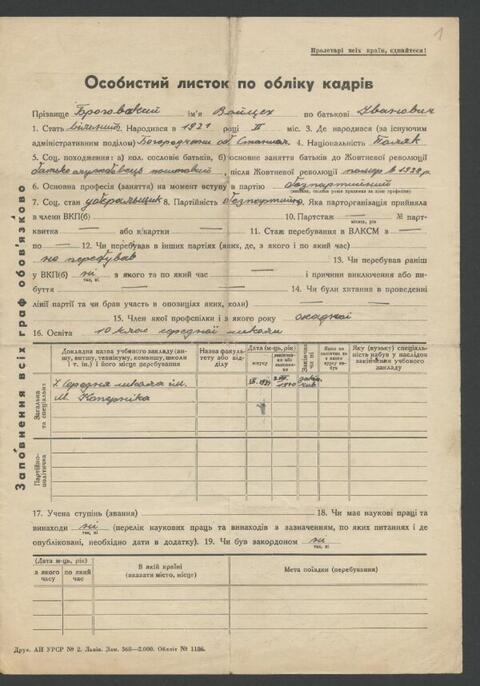 1
Пролетарі всіх країн, єднайтеся!
Особистий листок по обліку кадрів
Прізвище ім'я Войцех по батькові Іванович
1. Стать Народився в 1921 році II міс. 3. Де народився (за існуючим
адміністративним поділом) Богородчани об. Станіслав 4. Національність Поляк
5. Соц. походження: а) кол. сословіє батьків, б) основне заняття батьків до Жовтневої революції
батько службовець поштовий, після Жовтневої революції помер в 1928 р.
6. Основна професія (заняття) на момент вступу в партію безпартійний
7. Соц. стан 8. Партійність безпартійна. Яка парторганізація прийняла
в члени ВКП(б) — 10. Партстаж — № парт-
місяць, рік
квитка — або к/картки — 11. Стаж перебування в ВЛКСМ з —
по — 12. Чи перебував в інших партіях (яких, де, з якого і по який час) —
не перебував 13. Чи перебував раніш
у ВКП(б) ні з якого та по який час — і причини виключення або ви-
так, ні
буття — 14. Чи були хитання в проведенні
лінії партії та чи брав участь в опозиціях, яких, коли) —
15. Член якої профспілки і з якого року
16. Освіта 10 клас середної школи
Заповнення всіх граф обов'язково
Загальна та спеціальна
Докладна назва учбового закладу (ви-шу, втишу, технікуму, комвишу, школи і т. ін.) і його місце перебування
Назва факультету або відділу
Дата (м-ць, рік)
вступу
Закінчив чи ні
Яку (вузьку) спеціальність набув у наслідок закінчення учбового закладу
Середня школа ім.
М. Коперніка
Партійно-політична
17. Учена ступінь (звання) — 18. Чи має наукові праці та
винаходи ні (перелік наукових праць та винаходів з зазначенням, по яких питання і де
так, ні
опубліковані, необхідно дати в додатку). 19. Чи був закордоном ні
так, ні
(Дата м-ць, рік)
з якого часу
по який час
В якій країні
(вказати місто, місце)
Мета поїздки (перебування)
Друк. АН УРСР № 2. Львів. Зам. 565—2.000. Обліт № 1186.